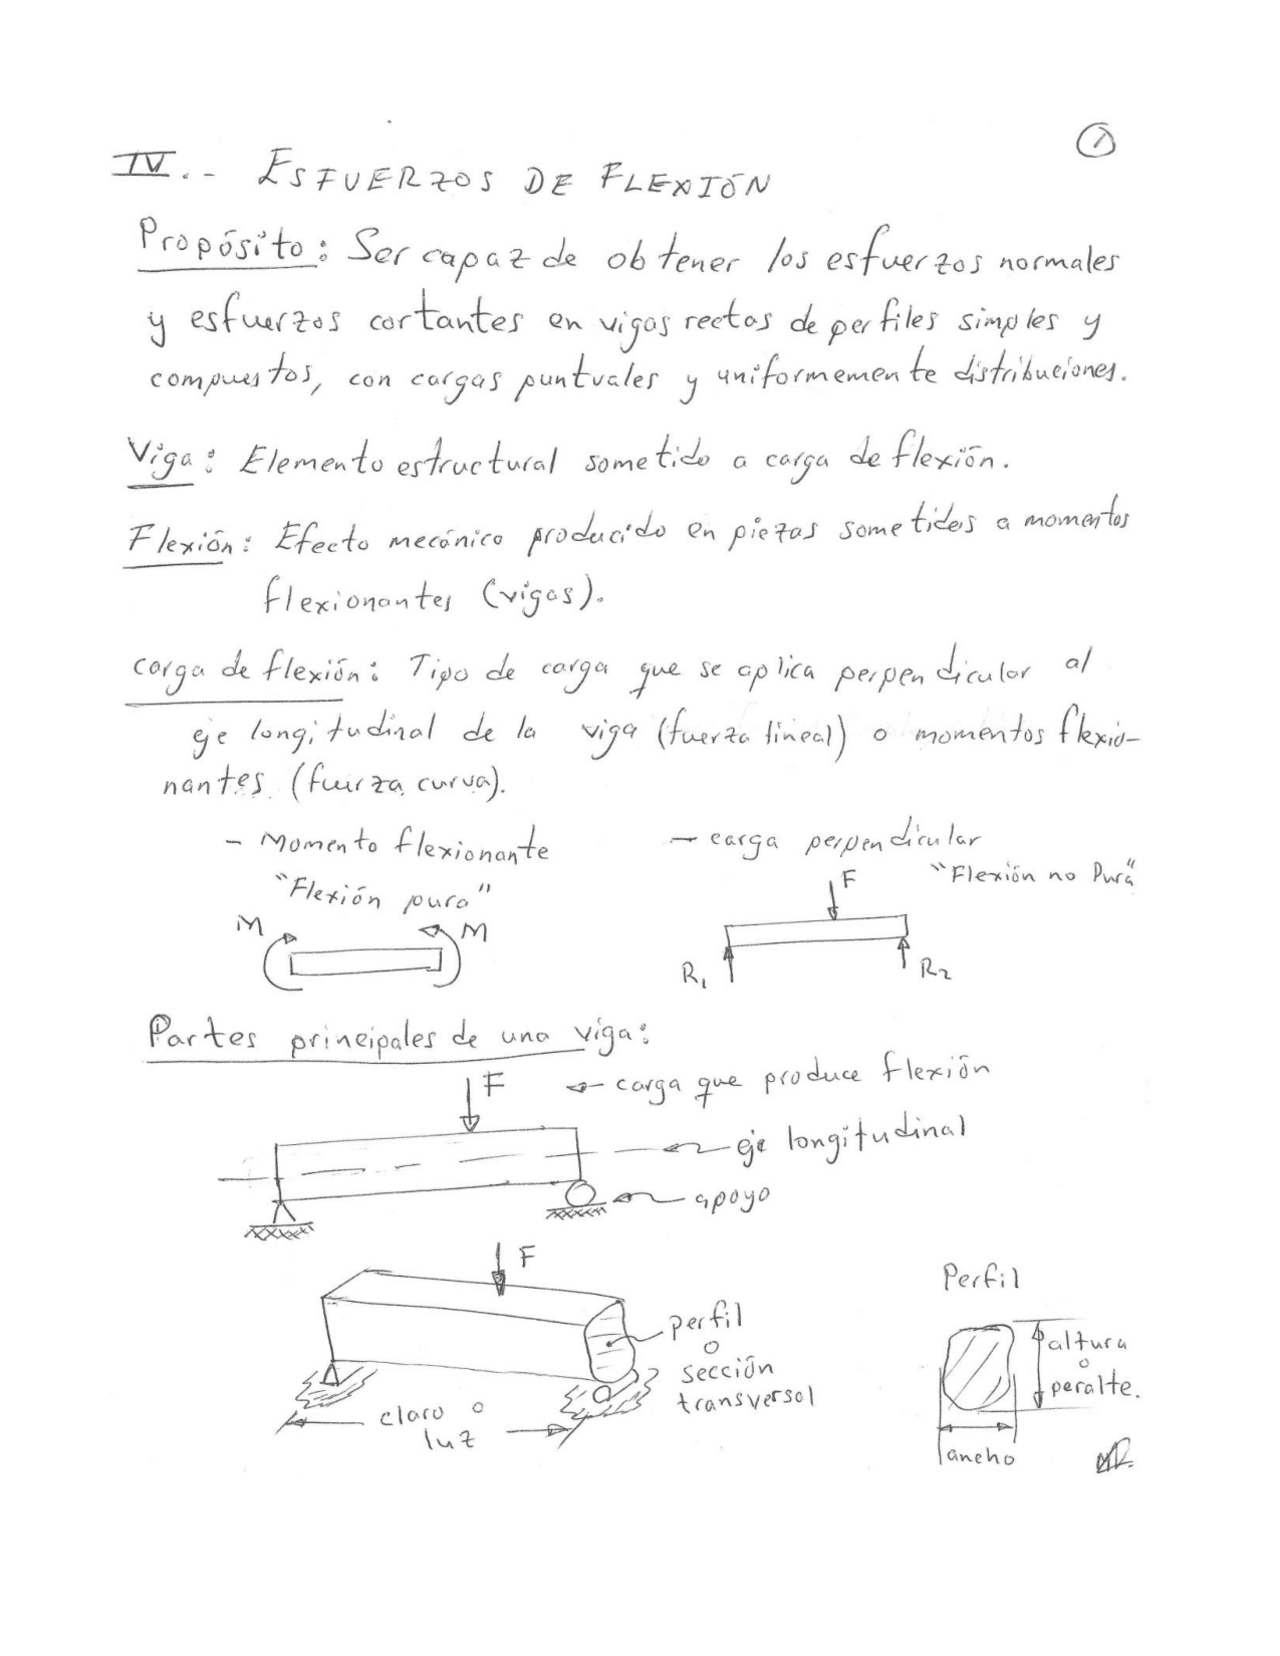 1
IV.- ESFUERZOS DE FLEXIÓN
Propósito: Ser capaz de obtener los esfuerzos normales
y esfuerzos cortantes en vigas rectas de perfiles simples y
compuestos, con cargas puntuales y uniformemente distribuciones.
Viga: Elemento estructural sometido a carga de flexión.
Flexión: Efecto mecánico producido en piezas sometidas a momentos
flexionantes (vigas).
carga de flexión: Tipo de carga que se aplica perpendicular al
eje longitudinal de la viga (fuerza lineal) o momentos flexio-
nantes (fuerza curva).
- Momento flexionante
"Flexión pura"
M M
- carga perpendicular
"Flexión no Pura"
F
R1 R2
Partes principales de una viga:
F
carga que produce flexión
eje longitudinal
apoyo
F
perfil
o
sección
transversal
claro o
luz
Perfil
altura
o
peralte.
ancho